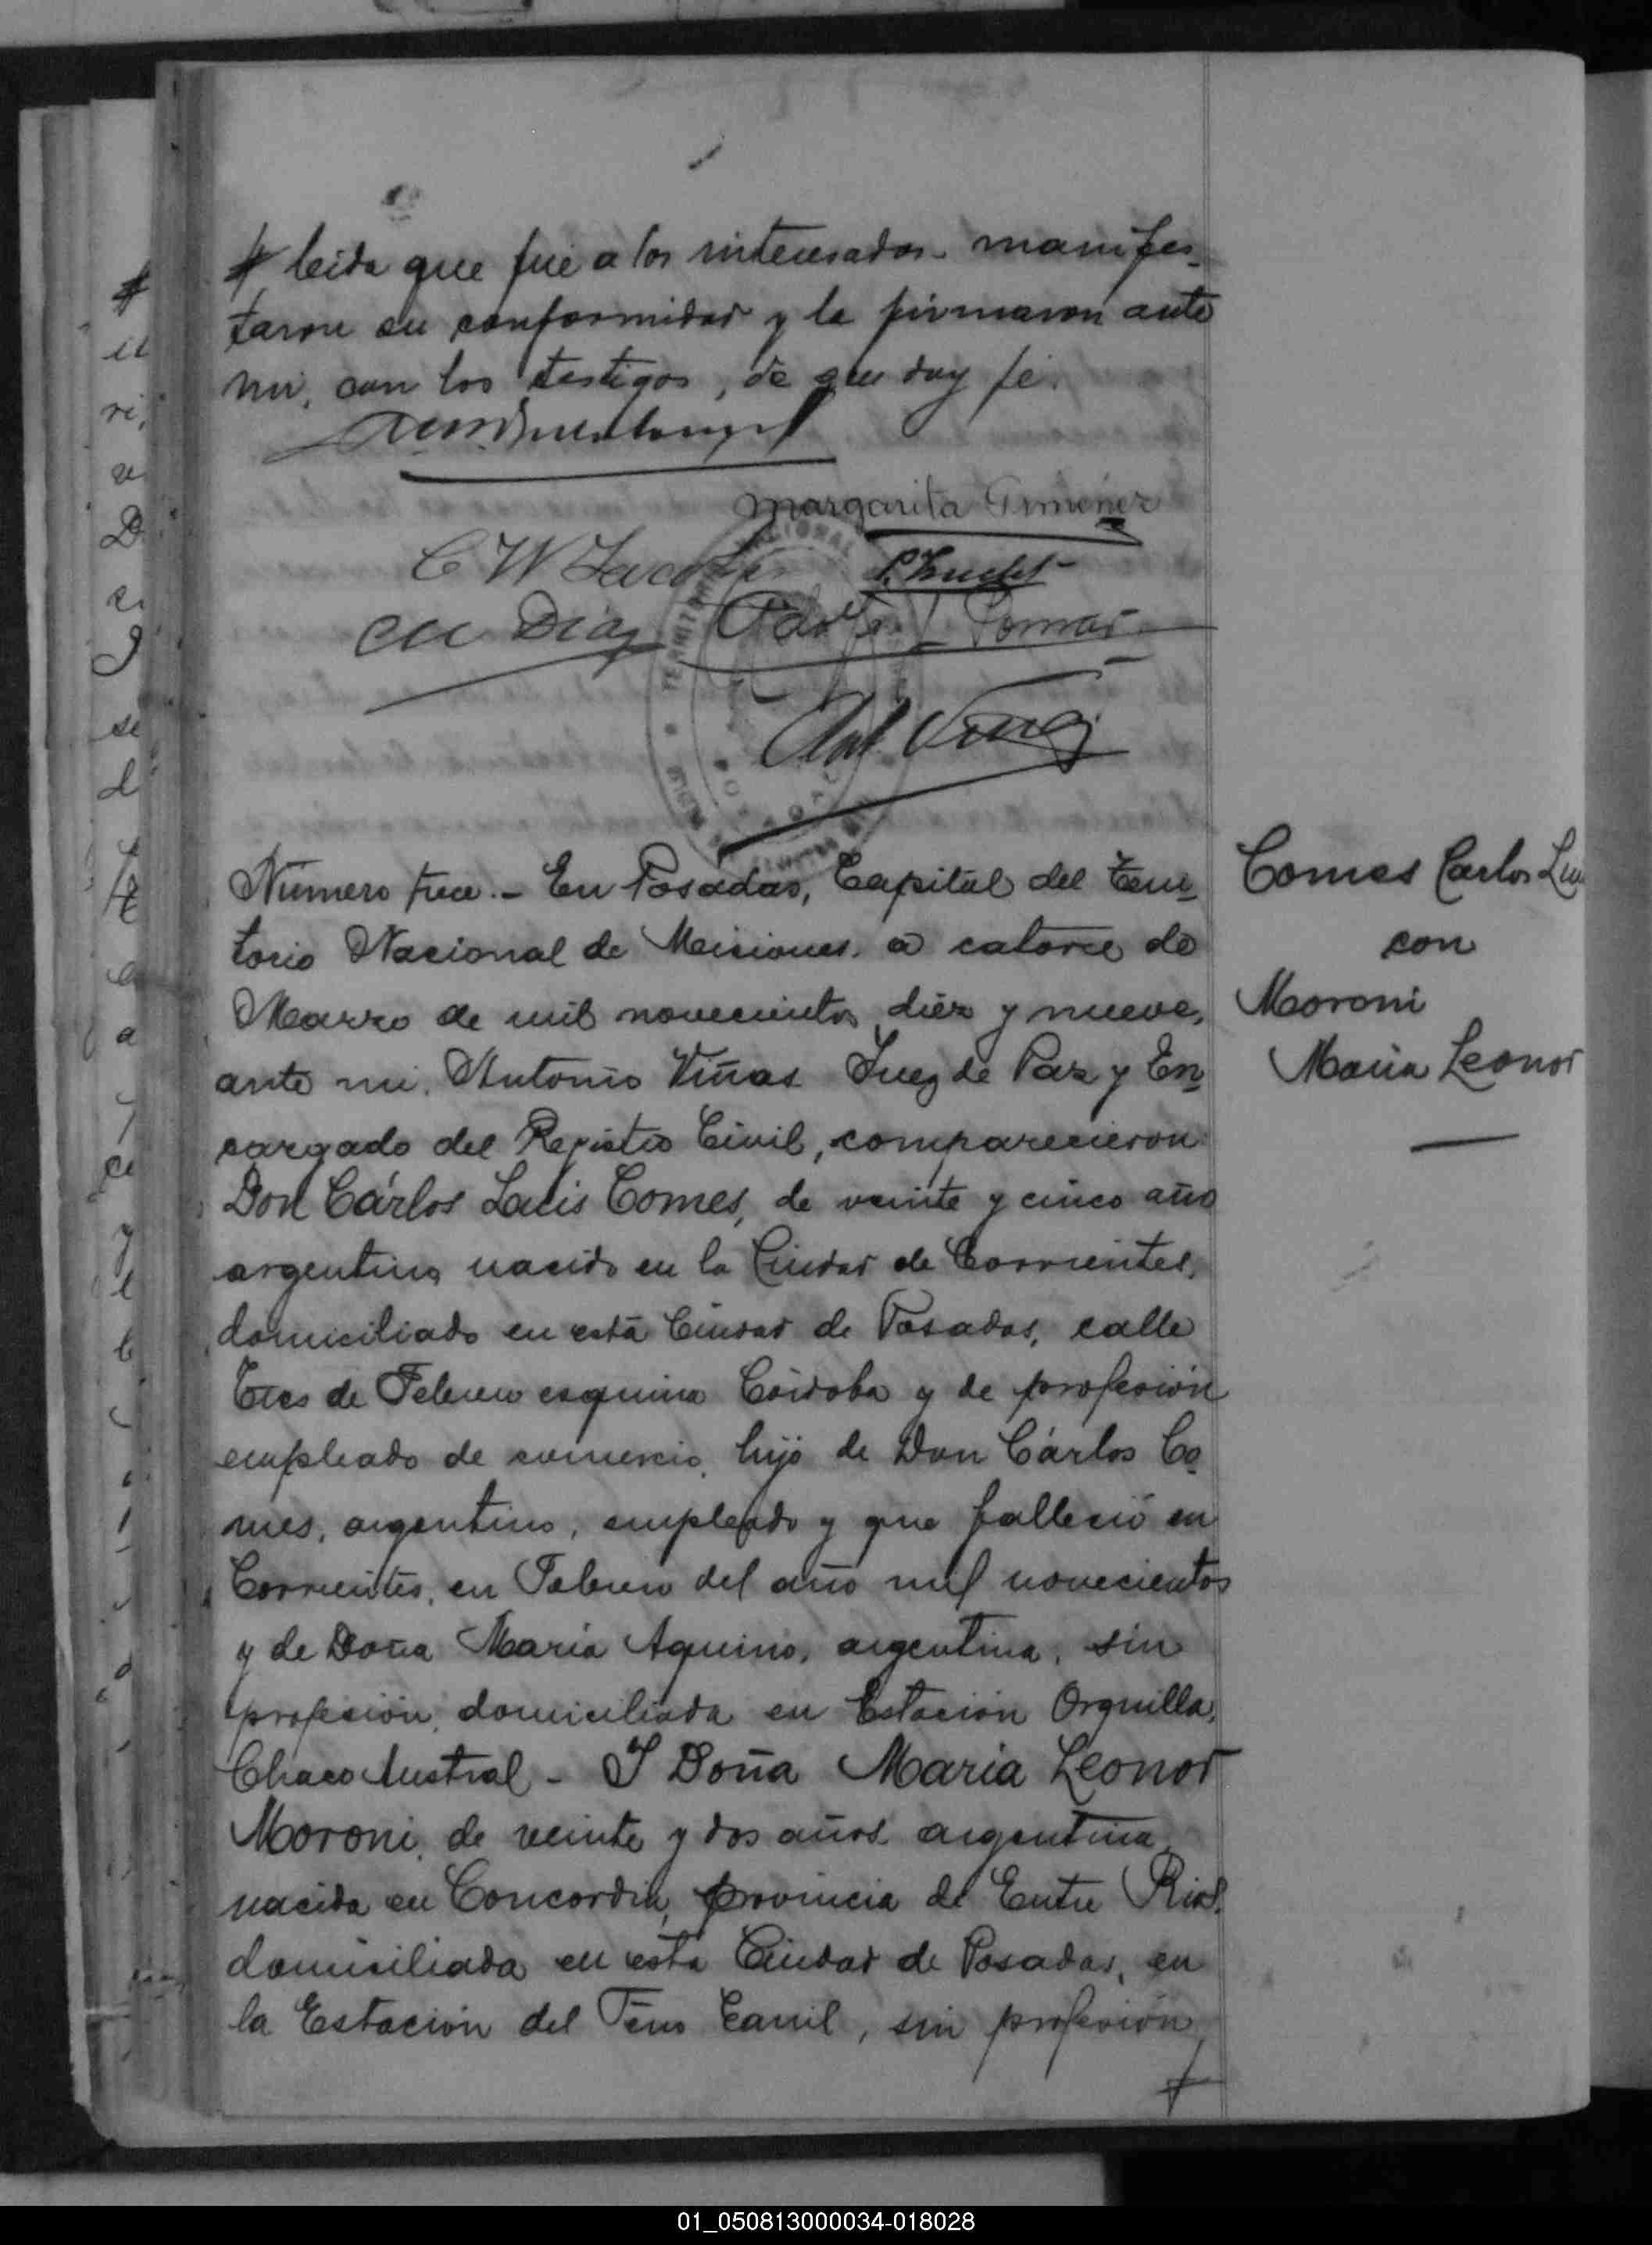 # leida que fué a los interesados manifes-
taron su conformidad y la firmaron ante
mi, con los testigos, de que doy fé.
Margarita Gimenez
C W
en Diaz Pomar
Ant Viñas
Número trece.- En Posadas, Capital del Terri-
torio Nacional de Misiones, a catorce de
Marzo de mil novecientos diez y nueve,
ante mi, Antonio Viñas Juez de Paz y En-
cargado del Registro Civil, comparecieron
Don Cárlos Luis Comes, de veinte y cinco años
argentino, nacido en la Ciudad de Corrientes,
domiciliado en esta Ciudad de Posadas, calle
Tres de Febrero esquina Córdoba y de profesión
empleado de comercio, hijo de Don Cárlos Co-
mes, argentino, empleado y que falleció en
Corrientes, en Febrero del año mil novecientos
y de Doña María Aquino, argentina, sin
profesión, domiciliada en Estación Orquilla,
Chaco Austral - Y Doña Maria Leonor
Moroni, de veinte y dos años argentina,
nacida en Concordia, provincia de Entre Rios,
domiciliada en esta Ciudad de Posadas, en
la Estación del Ferro Carril, sin profesión,
Comes Carlos Luis
con
Moroni
Maria Leonor
01_050813000034-018028